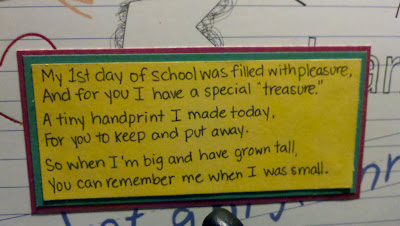 My 1st day of school was filled with pleasure,
And for you I have a special "treasure."
A tiny handprint I made today,
For you to keep and put away.
So when I'm big and have grown tall,
You can remember me when I was small.